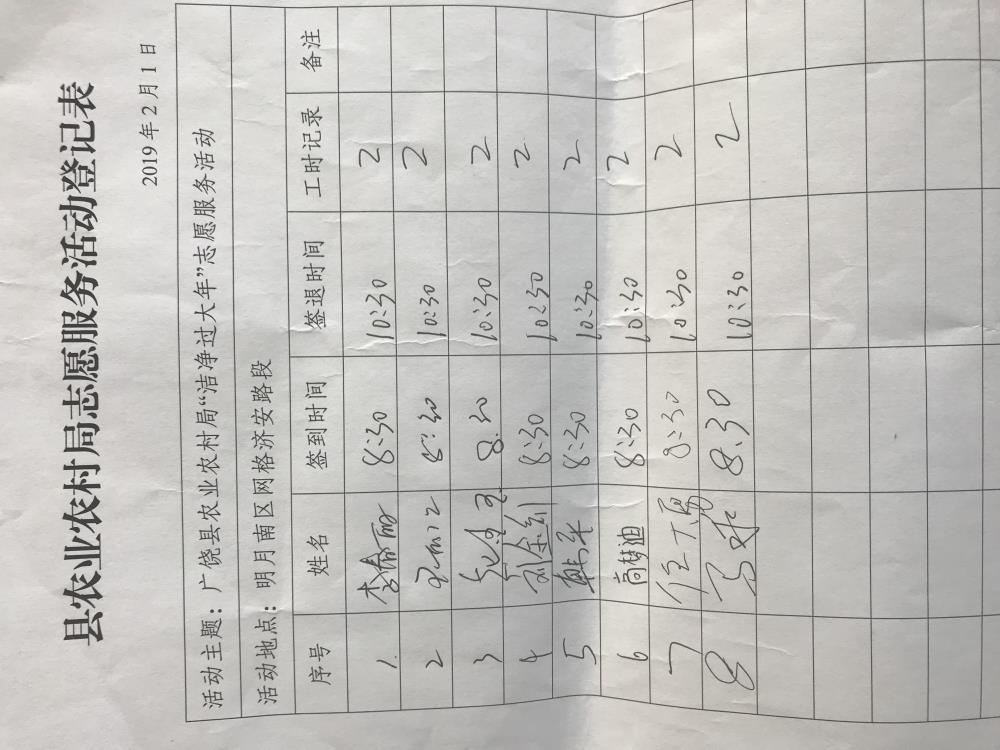 县农业农村局志愿服务活动登记表
2019年2月1日
活动主题：广饶县农业农村局“洁净过大年”志愿服务活动
活动地点：明月南区网格济安路段
序号 姓名 签到时间 签退时间 工时记录 备注
1. 李春丽 8:30 10:30 2
2 8:30 10:30 2
3 8:30 10:30 2
4 刘金剑 8:30 10:30 2
5 韩华 8:30 10:30 2
6 尚梦迪 8:30 10:30 2
7 任大勇 8:30 10:30 2
8 8:30 10:30 2